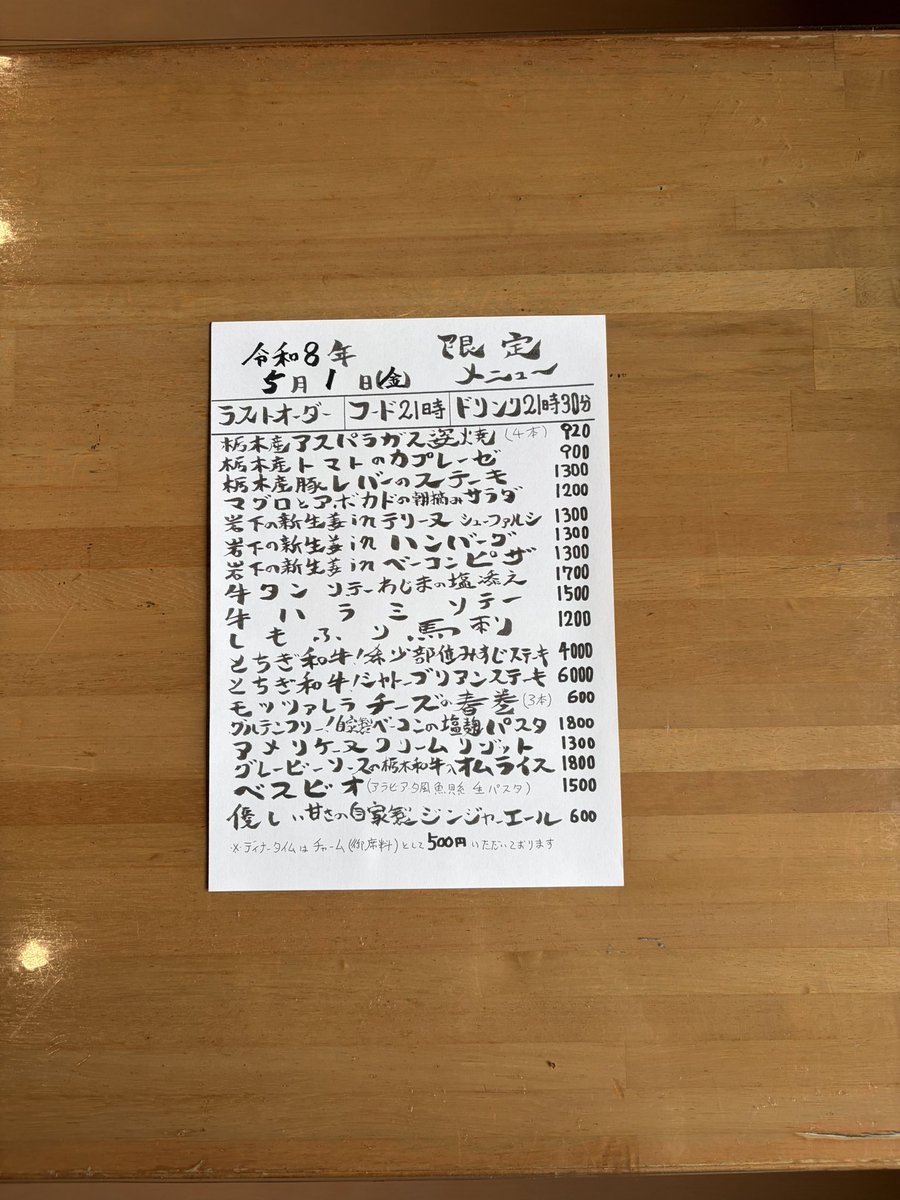 令和8年 限定
5月1日(金) メニュー
ラストオーダー フード21時 ドリンク21時30分
栃木産アスパラガス姿焼(4本) 920
栃木産トマトのカプレーゼ 900
栃木産豚レバーのステーキ 1300
マグロとアボカドの朝摘みサラダ 1200
岩下の新生姜inテリーヌ シューファルシ 1300
岩下の新生姜inハンバーグ 1300
岩下の新生姜inベーコンピザ 1300
牛タンソテーわじまの塩添え 1700
牛ハラミソテー 1500
しもふり馬刺 1200
とちぎ和牛!希少部位みすじステキ 4000
とちぎ和牛!シャトーブリアンステーキ 6000
モッツァレラチーズの春巻(3本) 600
グルテンフリー!自家製ベーコンの塩麹パスタ 1800
アメリケーヌクリームリゾット 1300
グレービーソースの栃木和牛入オムライス 1800
ベスビオ(アラビアタ風魚貝 生パスタ) 1500
優しい甘さの自家製ジンジャーエール 600
※ディナータイムはチャーム(御席料)として500円いただいております